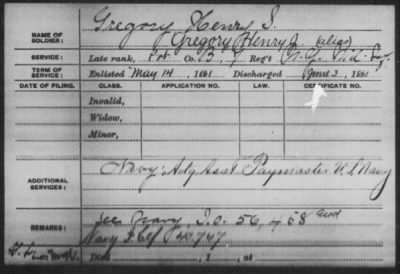 Gregory Henry S.
NAME OF SOLDIER: Gregory Henry J. (alias)
SERVICE: Late rank, Pvt Co. B, 7 Reg't N.Y. Mil. Inf.
TERM OF SERVICE: Enlisted May 14, 1861 Discharged June 3, 1861
DATE OF FILING. CLASS. APPLICATION NO. LAW. CERTIFICATE NO.
Invalid,
Widow,
Minor,
ADDITIONAL SERVICES: Navy: Actg Asst Paymaster U S Navy
REMARKS: See Navy, I.O. 56,468 and
Navy I. Ctf 40,747
Died , 1 , at